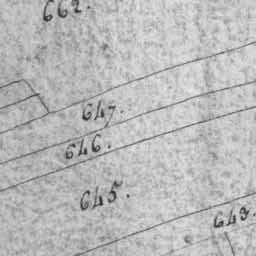 662.
647.
646.
645.
643.